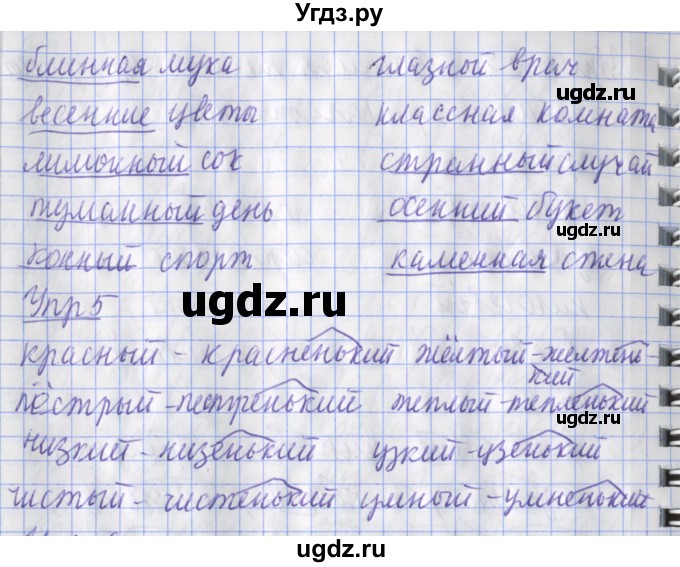 Угдз.ру
блинная мука глазной врач
ugdz.ru
весенние цветы классная комната
лимонный сок странный случай
ugdz.ru
туманный день осенний букет
ugdz.ru
конный спорт каменная стена
Упр 5
ugdz.ru
ugdz.ru
красный - красненький жёлтый - желтень-
кий
пёстрый - пестренький теплый - тепленький
ugdz.ru
низкий - низенький узкий - узенький
ugdz.ru
чистый - чистенький умный - умненький
ugdz.ru